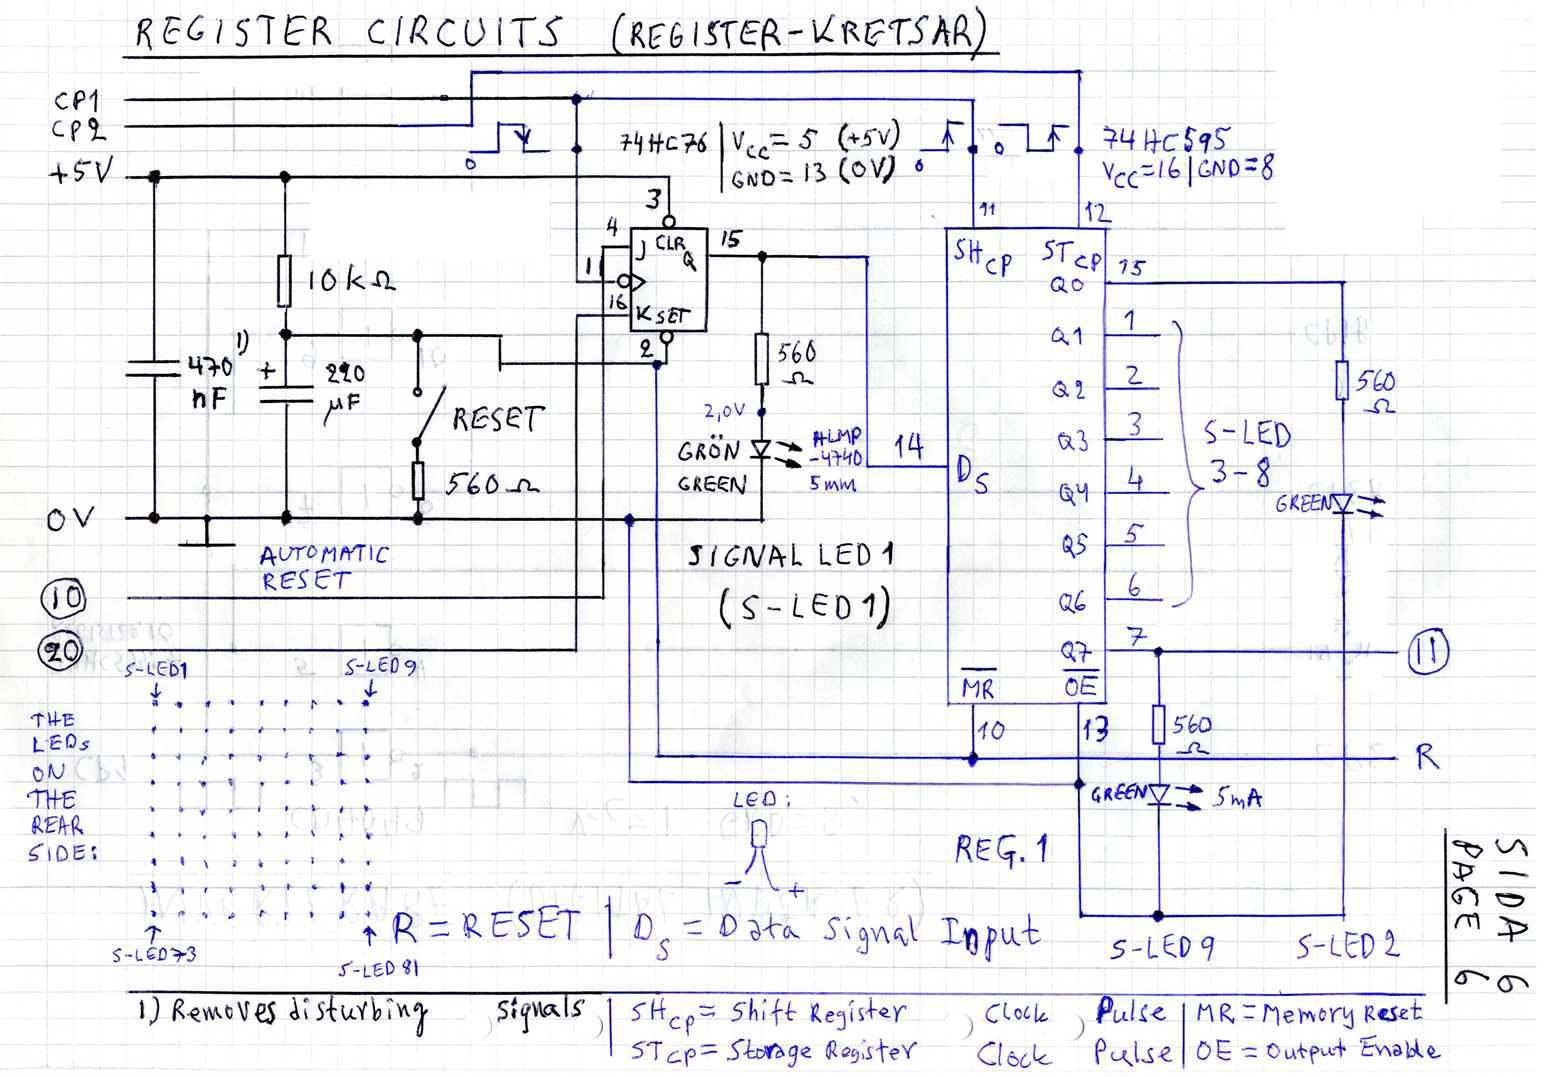 REGISTER CIRCUITS (REGISTER-KRETSAR)
CP1
CP2
+5V
0
74HC76
VCC = 5 (+5V)
GND = 13 (0V)
0
0
74HC595
VCC=16 | GND=8
3
4
J
CLR
Q
15
1
16
K
SET
2
11
12
SHCP
STCP
15
Q0
Q1
1
Q2
2
Q3
3
Q4
4
Q5
5
Q6
6
Q7
7
S-LED
3-8
560
Ω
GREEN
10kΩ
1)
470
nF
+
220
µF
RESET
560Ω
560
Ω
2,0V
GRÖN
GREEN
HLMP
-4740
5mm
14
DS
0V
AUTOMATIC
RESET
SIGNAL LED1
(S-LED1)
10
20
11
MR
OE
10
13
560
Ω
R
GREEN
5mA
S-LED1
S-LED9
THE
LEDs
ON
THE
REAR
SIDE:
S-LED73
S-LED81
LED:
- +
REG.1
S-LED9
S-LED2
R = RESET | DS = Data Signal Input
SIDA 6
PAGE 6
1) Removes disturbing signals
SHCP = Shift Register Clock Pulse | MR = Memory Reset
STCP = Storage Register Clock Pulse | OE = Output Enable